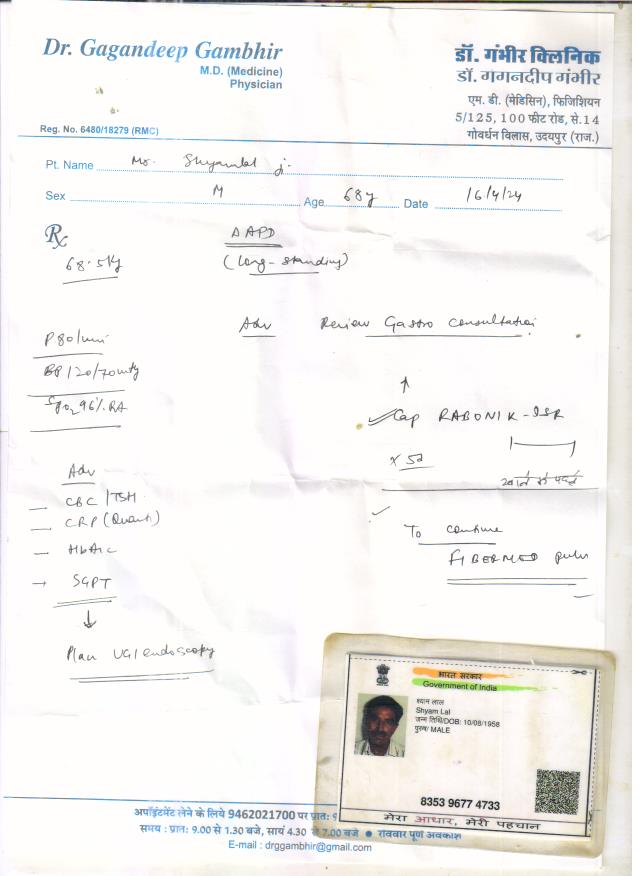 Dr. Gagandeep Gambhir
M.D. (Medicine)
Physician
Reg. No. 6480/18279 (RMC)
डॉ. गंभीर क्लिनिक
डॉ. गगनदीप गंभीर
एम. डी. (मेडिसिन), फिजिशियन
5/125, 100 फीट रोड, से.14
गोवर्धन विलास, उदयपुर (राज.)
Pt. Name Mr. Shyamlal ji
Sex M Age 68y Date 16/4/24
Rx
68.5kg
AAPD
(Long-standing)
Adv Review Gastro Consultation
P 80/min
BP 120/70mmHg
SpO2 96% RA
Cap RABONIK-DSR
x 5d
खाने से पहले
Adv
CBC/TSH
CRP (Quanti)
HbA1c
SGPT
Plan UGI endoscopy
To continue
FIBERMED
भारत सरकार
Government of India
श्याम लाल
Shyam Lal
जन्म तिथि/DOB: 10/08/1958
पुरुष/ MALE
8353 9677 4733
मेरा आधार, मेरी पहचान
अपॉइंटमेंट लेने के लिये 9462021700 पर प्रात: 9
समय : प्रात: 9.00 से 1.30 बजे, सायं 4.30 से 7.00 बजे ● रविवार पूर्ण अवकाश
E-mail : drggambhir@gmail.com